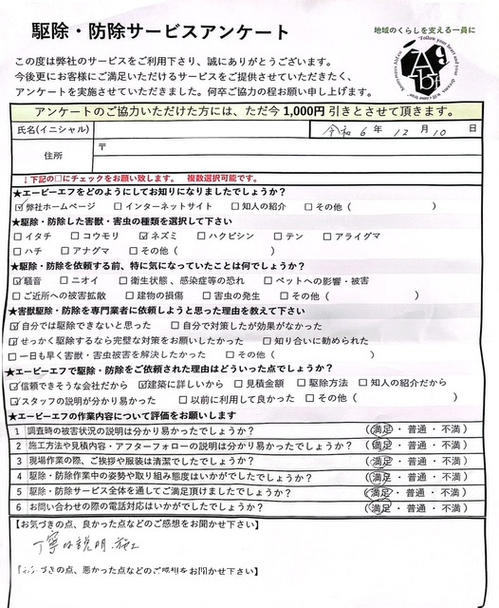 駆除・防除サービスアンケート
地域のくらしを支える一員に
この度は弊社のサービスをご利用下さり、誠にありがとうございます。
今後更にお客様にご満足いただけるサービスをご提供させていただきたく、
アンケートを実施させていただきました。何卒ご協力の程お願い申し上げます。
アンケートのご協力いただけた方には、ただ今1,000円引きとさせて頂きます。
氏名(イニシャル) 令和 6 年 12 月 10 日
住所 〒
↓下記の□にチェックをお願い致します。 複数選択可能です。
★エービーエフをどのようにしてお知りになりましたでしょうか?
☑弊社ホームページ □インターネットサイト □知人の紹介 □その他( )
★駆除・防除した害獣・害虫の種類を選択して下さい
□イタチ □コウモリ ☑ネズミ □ハクビシン □テン □アライグマ
□ハチ □アナグマ □その他( )
★駆除・防除を依頼する前、特に気になっていたことは何でしょうか?
☑騒音 □ニオイ □衛生状態、感染症等の恐れ □ペットへの影響・被害
□ご近所への被害拡散 □建物の損傷 □害虫の発生 □その他( )
★害獣駆除・防除を専門業者に依頼しようと思った理由を教えて下さい
☑自分では駆除できないと思った □自分で対策したが効果がなかった
☑せっかく駆除するなら完璧な対策をお願いしたかった □知り合いに勧められた
□一日も早く害獣・害虫被害を解決したかった □その他( )
★エービーエフで駆除・防除をご依頼された理由はどういった点でしょうか?
☑信頼できそうな会社だから ☑建築に詳しいから □見積金額 □駆除方法 □知人の紹介だから
☑スタッフの説明が分かり易かった □以前に利用して良かった □その他( )
★エービーエフの作業内容について評価をお願いします
1 調査時の被害状況の説明は分かり易かったでしょうか? (満足・普通・不満)
2 施工方法や見積内容・アフターフォローの説明は分かり易かったでしょうか? (満足・普通・不満)
3 現場作業の際、ご挨拶や服装は清潔でしたでしょうか? (満足・普通・不満)
4 駆除・防除作業中の姿勢や取り組み態度はいかがでしたでしょうか? (満足・普通・不満)
5 駆除・防除サービス全体を通してご満足頂けましたでしょうか? (満足・普通・不満)
6 お問い合わせの際の電話対応はいかがでしたでしょうか? (満足・普通・不満)
【お気づきの点、良かった点などのご感想をお聞かせ下さい】
丁寧な説明、施工
【お気づきの点、悪かった点などのご感想をお聞かせ下さい】